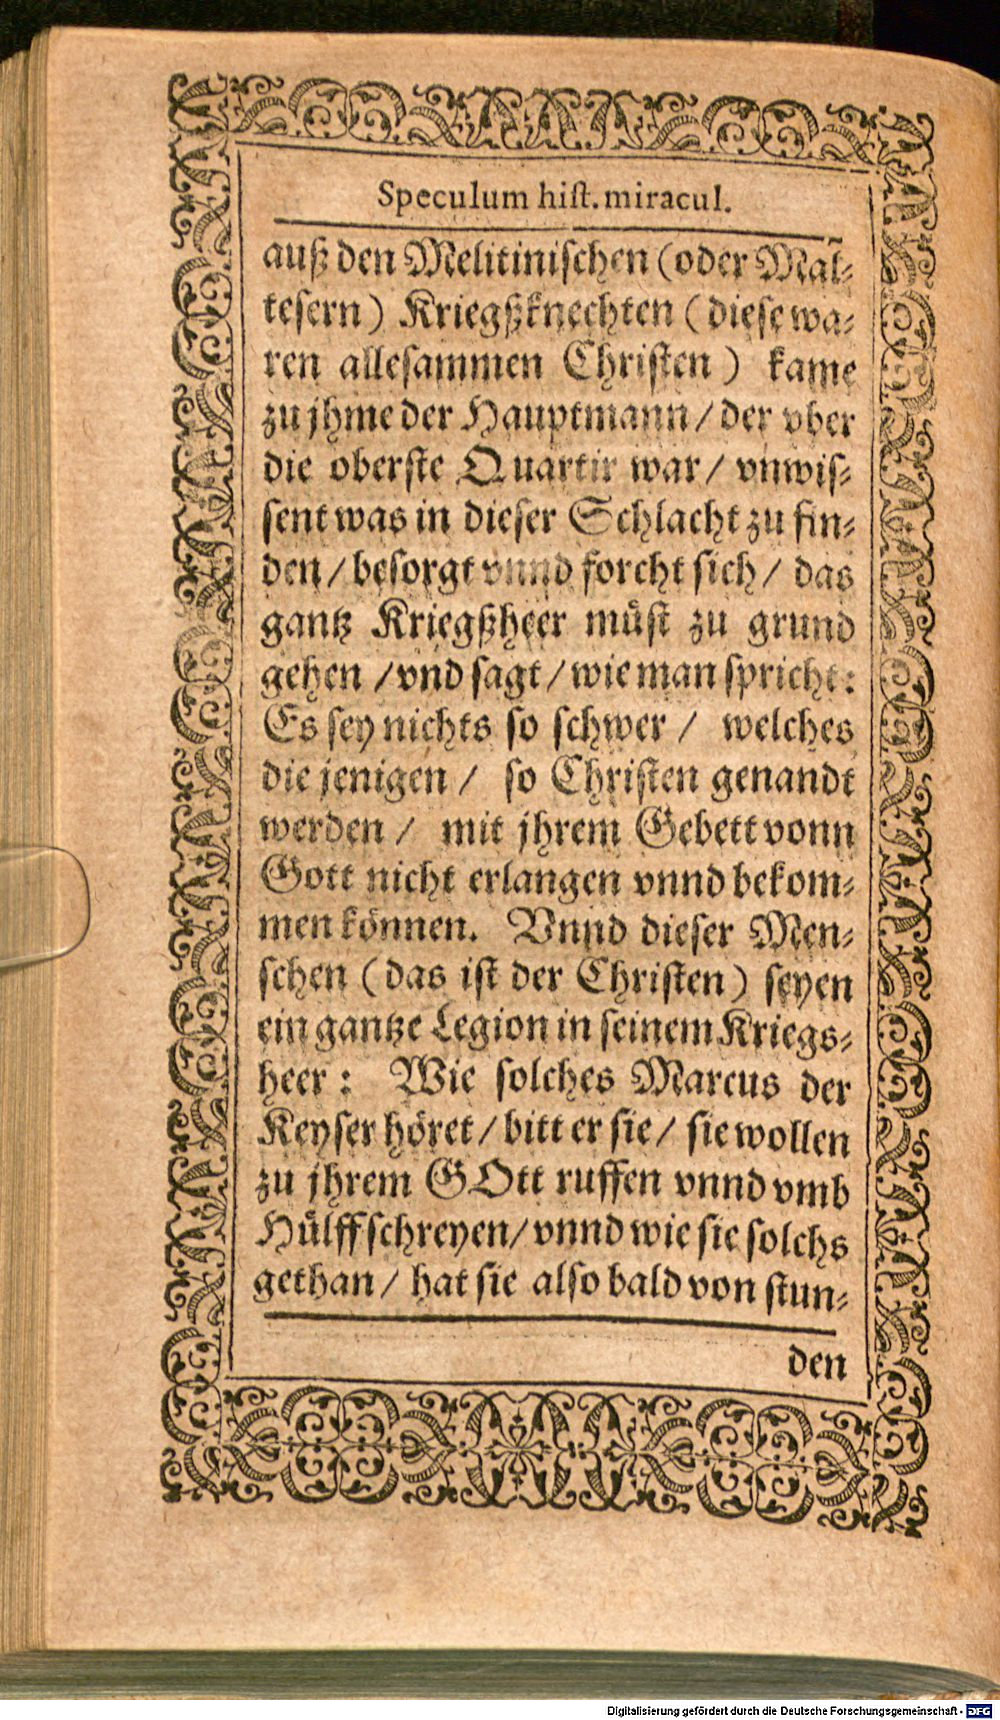 Speculum hist. miracul.
auß den Melitinischen (oder Mal-
tesern) Kriegßknechten (diese wa-
ren allesammen Christen) kame
zu jhme der Hauptmann / der vber
die oberste Quartir war / vnwis-
sent was in dieser Schlacht zu fin-
den / besorgt vnnd forcht sich / das
gantz Kriegßheer muͤst zu grund
gehen / vnd sagt / wie man spricht:
Es sey nichts so schwer / welches
die jenigen / so Christen genandt
werden / mit jhrem Gebett vonn
Gott nicht erlangen vnnd bekom-
men koͤnnen. Vnnd dieser Men-
schen (das ist der Christen) seyen
ein gantze Legion in seinem Kriegs-
heer: Wie solches Marcus der
Keyser hoͤret / bitt er sie / sie wollen
zu jhrem GOtt ruffen vnnd vmb
Huͤlff schreyen / vnnd wie sie solchs
gethan / hat sie also bald von stun-
den
Digitalisierung gefördert durch die Deutsche Forschungsgemeinschaft - DFG